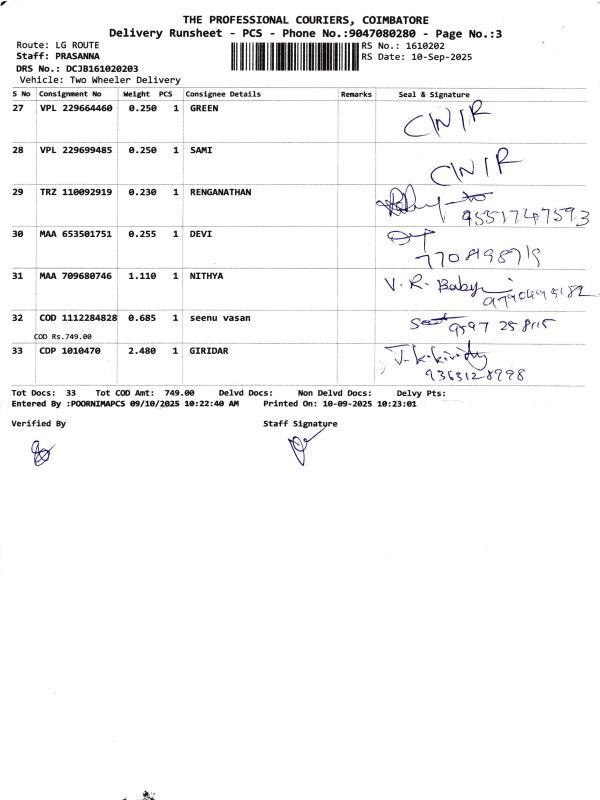 THE PROFESSIONAL COURIERS, COIMBATORE
Delivery Runsheet - PCS - Phone No.:9047080280 - Page No.:3
Route: LG ROUTE RS No.: 1610202
Staff: PRASANNA RS Date: 10-Sep-2025
DRS No.: DCJB161020203
Vehicle: Two Wheeler Delivery
S No Consignment No Weight PCS Consignee Details Remarks Seal & Signature
27 VPL 229664460 0.250 1 GREEN C/N/R
28 VPL 229699485 0.250 1 SAMI C/N/R
29 TRZ 110092919 0.230 1 RENGANATHAN
9551747593
30 MAA 653501751 0.255 1 DEVI
31 MAA 709680746 1.110 1 NITHYA V. R. Baby
32 COD 1112284828 0.685 1 seenu vasan
COD Rs.749.00
33 CDP 1010470 2.480 1 GIRIDAR
9363128998
Tot Docs: 33 Tot COD Amt: 749.00 Delvd Docs: Non Delvd Docs: Delvy Pts:
Entered By :POORNIMAPCS 09/10/2025 10:22:40 AM Printed On: 10-09-2025 10:23:01
Verified By Staff Signature